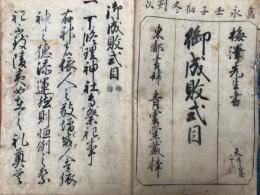 永壬子初冬刻
梅澤先生書
御成敗式目
東都書肆 青雲堂蔵梓
御成敗式目
一可修理神社専祭祀事
右神者依人之敬増威人者依
神之徳添運然則恒例之祭
祀不致陵夷如在之礼奠莫